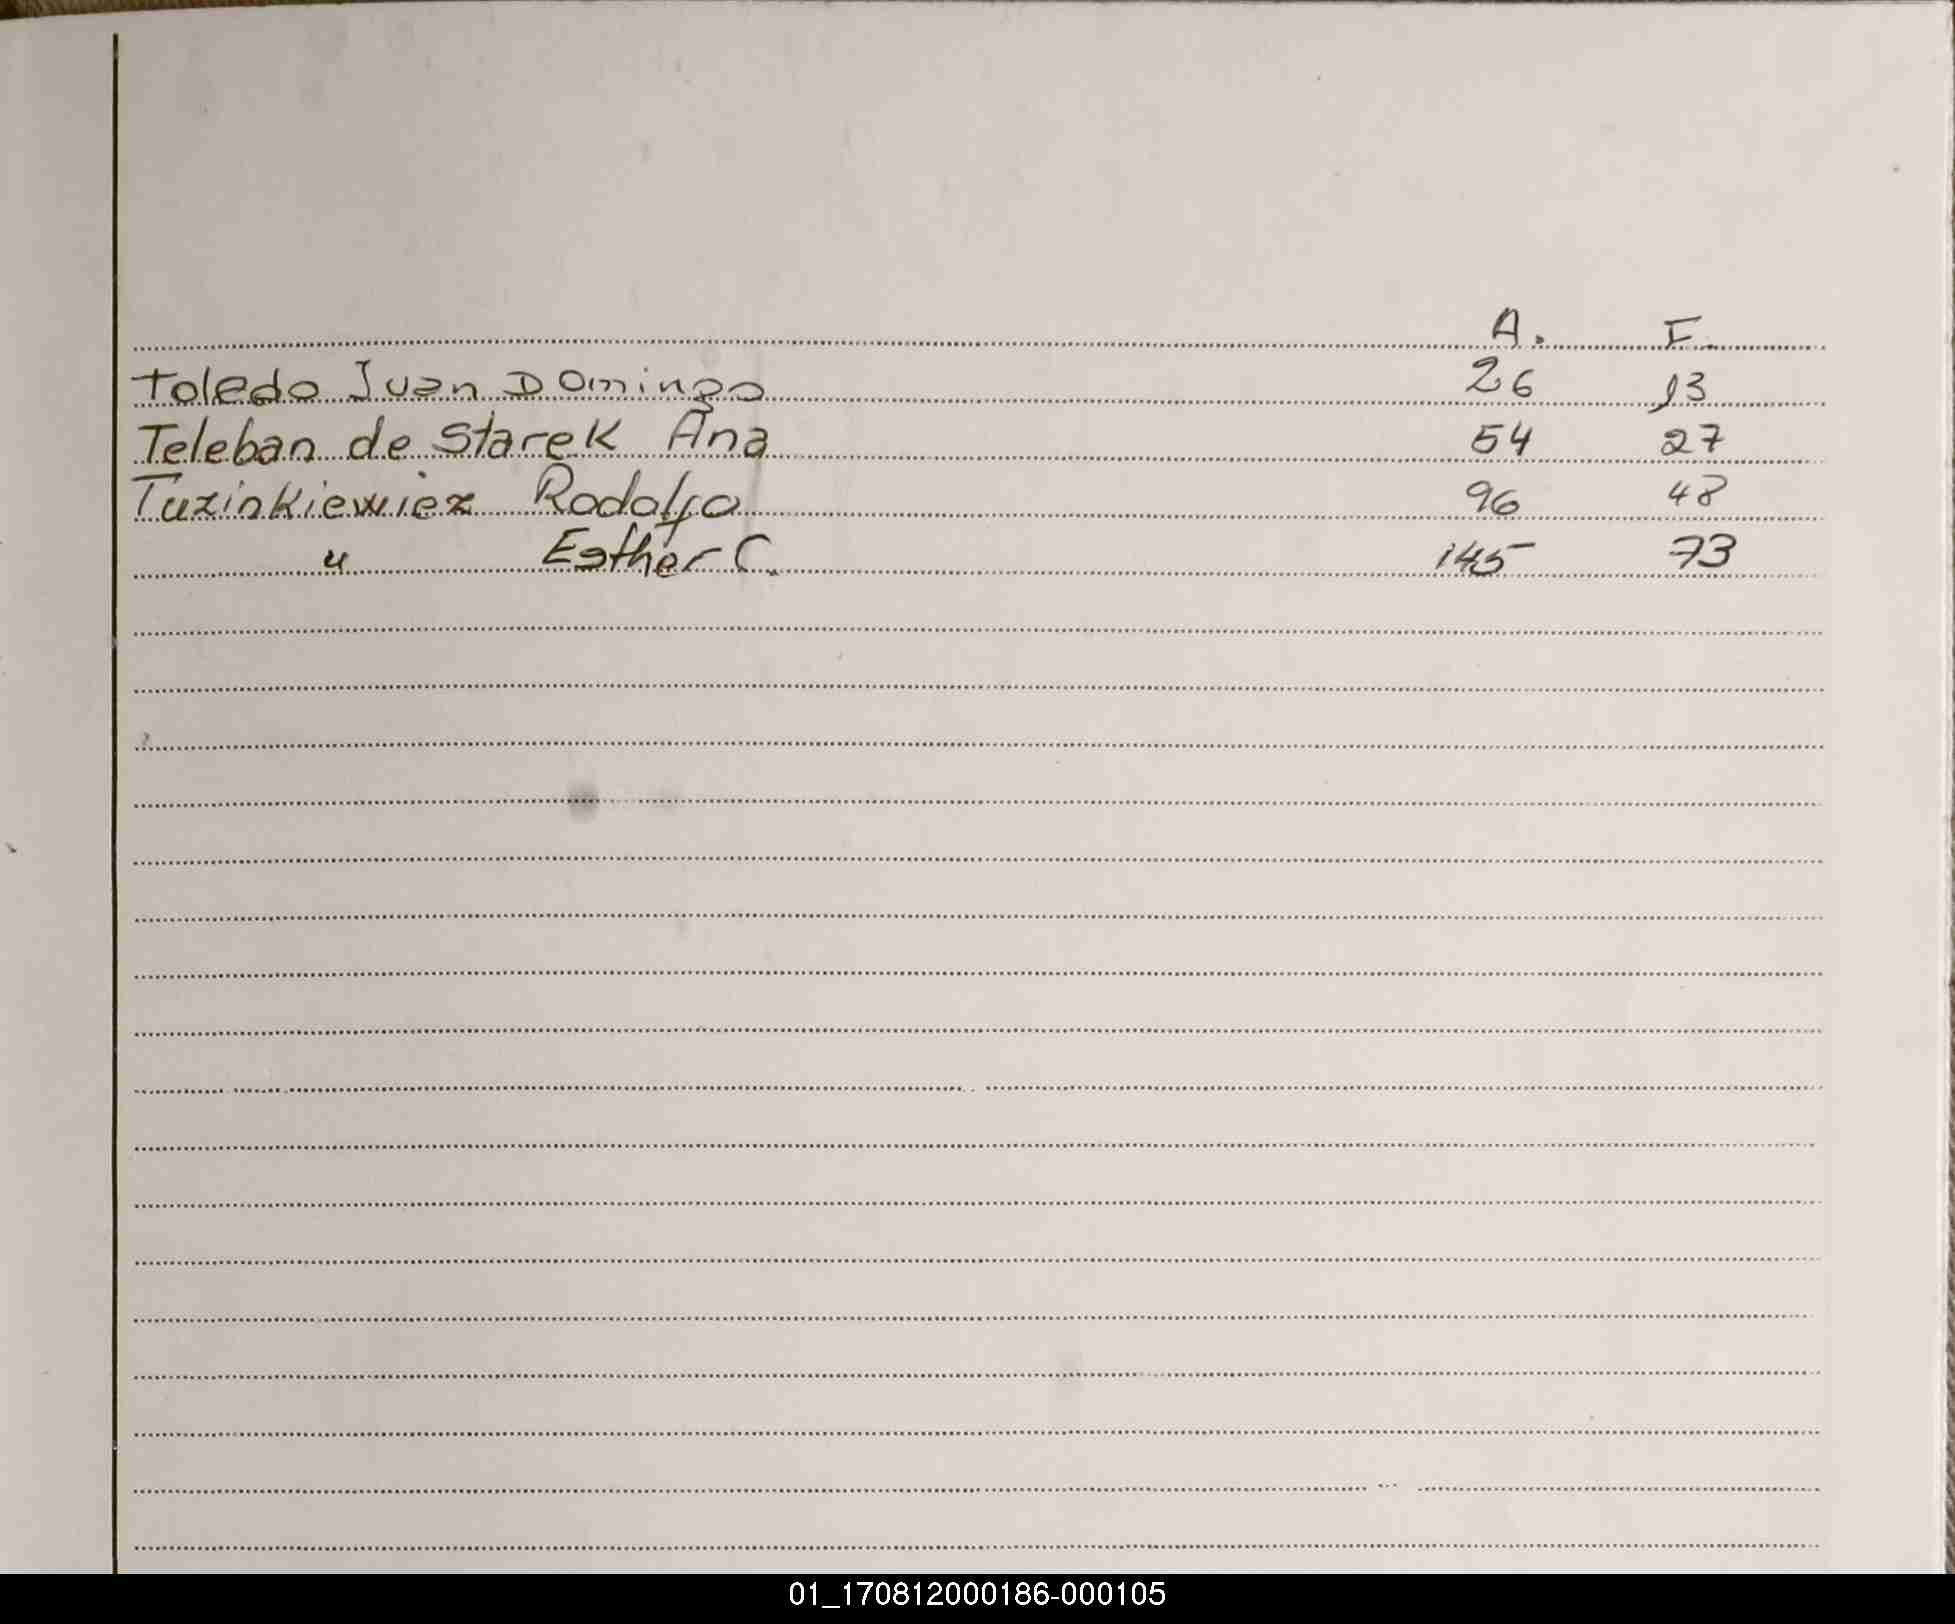 A. F.
Toledo Juan Domingo 26 13
Teleban de Starek Ana 54 27
Tuzinkiewiez Rodolfo 96 48
" Esther C. 145 73
01_170812000186-000105